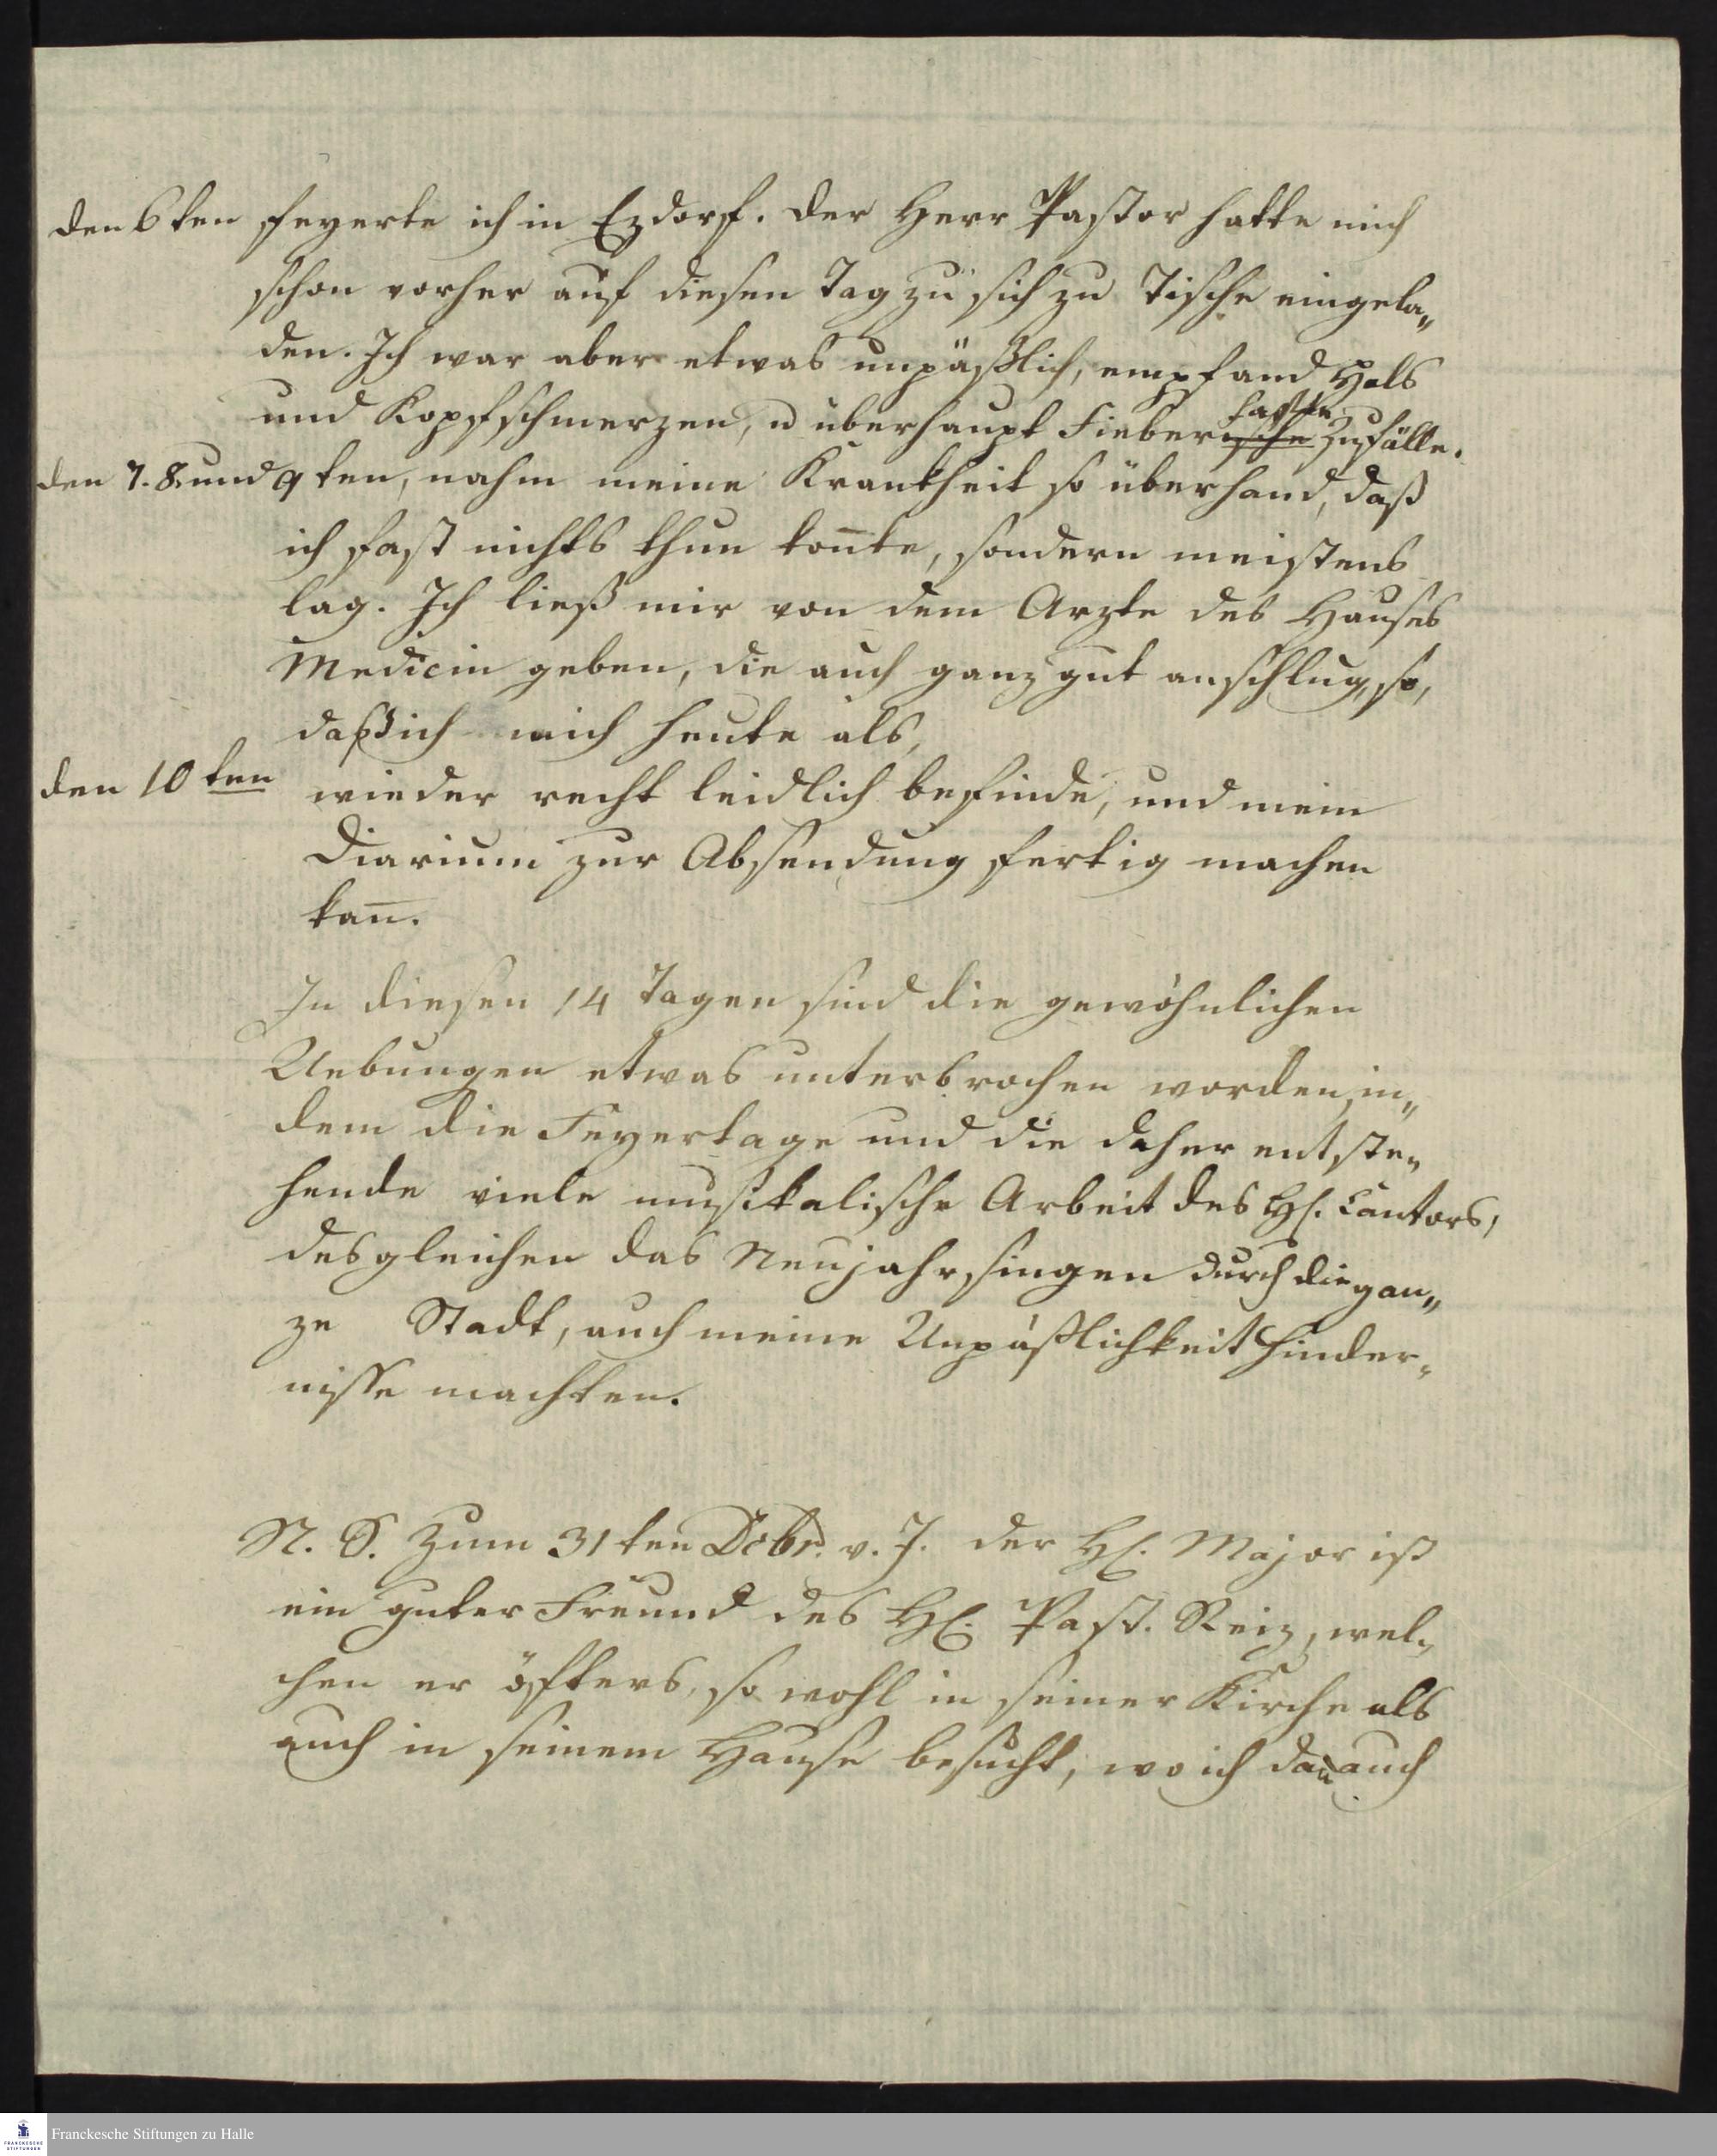 den 6ten feyerte ich in Ezdorf. der Herr Pastor hatte mich
schon vorher auf diesen Tag zu sich zu Tische eingela„
den. Ich war aber etwas unpäßlich, empfand Hals
und Kopfschmerzen, u überhaupt Fieberische hafte Zufälle.
den 7. 8. und 9ten, nahm meine Krankheit so überhand, daß
ich fast nichts thun kon̄te, sondern meistens
lag. Ich ließ mir von dem Arzte des Hauses
Medicin geben, die auch ganz gut anschlug, so,
daß ich mich heute als,
den 10ten wieder recht leidlich befinde, und mein
Diarium zur Absendung fertig machen
kan̄.
In diesen 14 Tagen sind die gewöhnlichen
Uebungen etwas unterbrochen worden, in„
dem die Feyertage und die daher entste„
hende viele musikalische Arbeit des H. Cantors,
desgleichen das Neujahrsingen durch die gan„
ze Stadt, auch meine Unpäßlichkeit Hinder„
nisse machten.
N. S. Zum 31ten Dcbr. v. J. der H. Major ist
ein guter Freund des H. Past. Reiz, wel„
chen er öfters, so wohl in seiner Kirche als
auch in seinem Hause besucht, wo ich dan̄ auch
Franckesche Stiftungen zu Halle
FRANCKESCHE
STIFTUNGEN